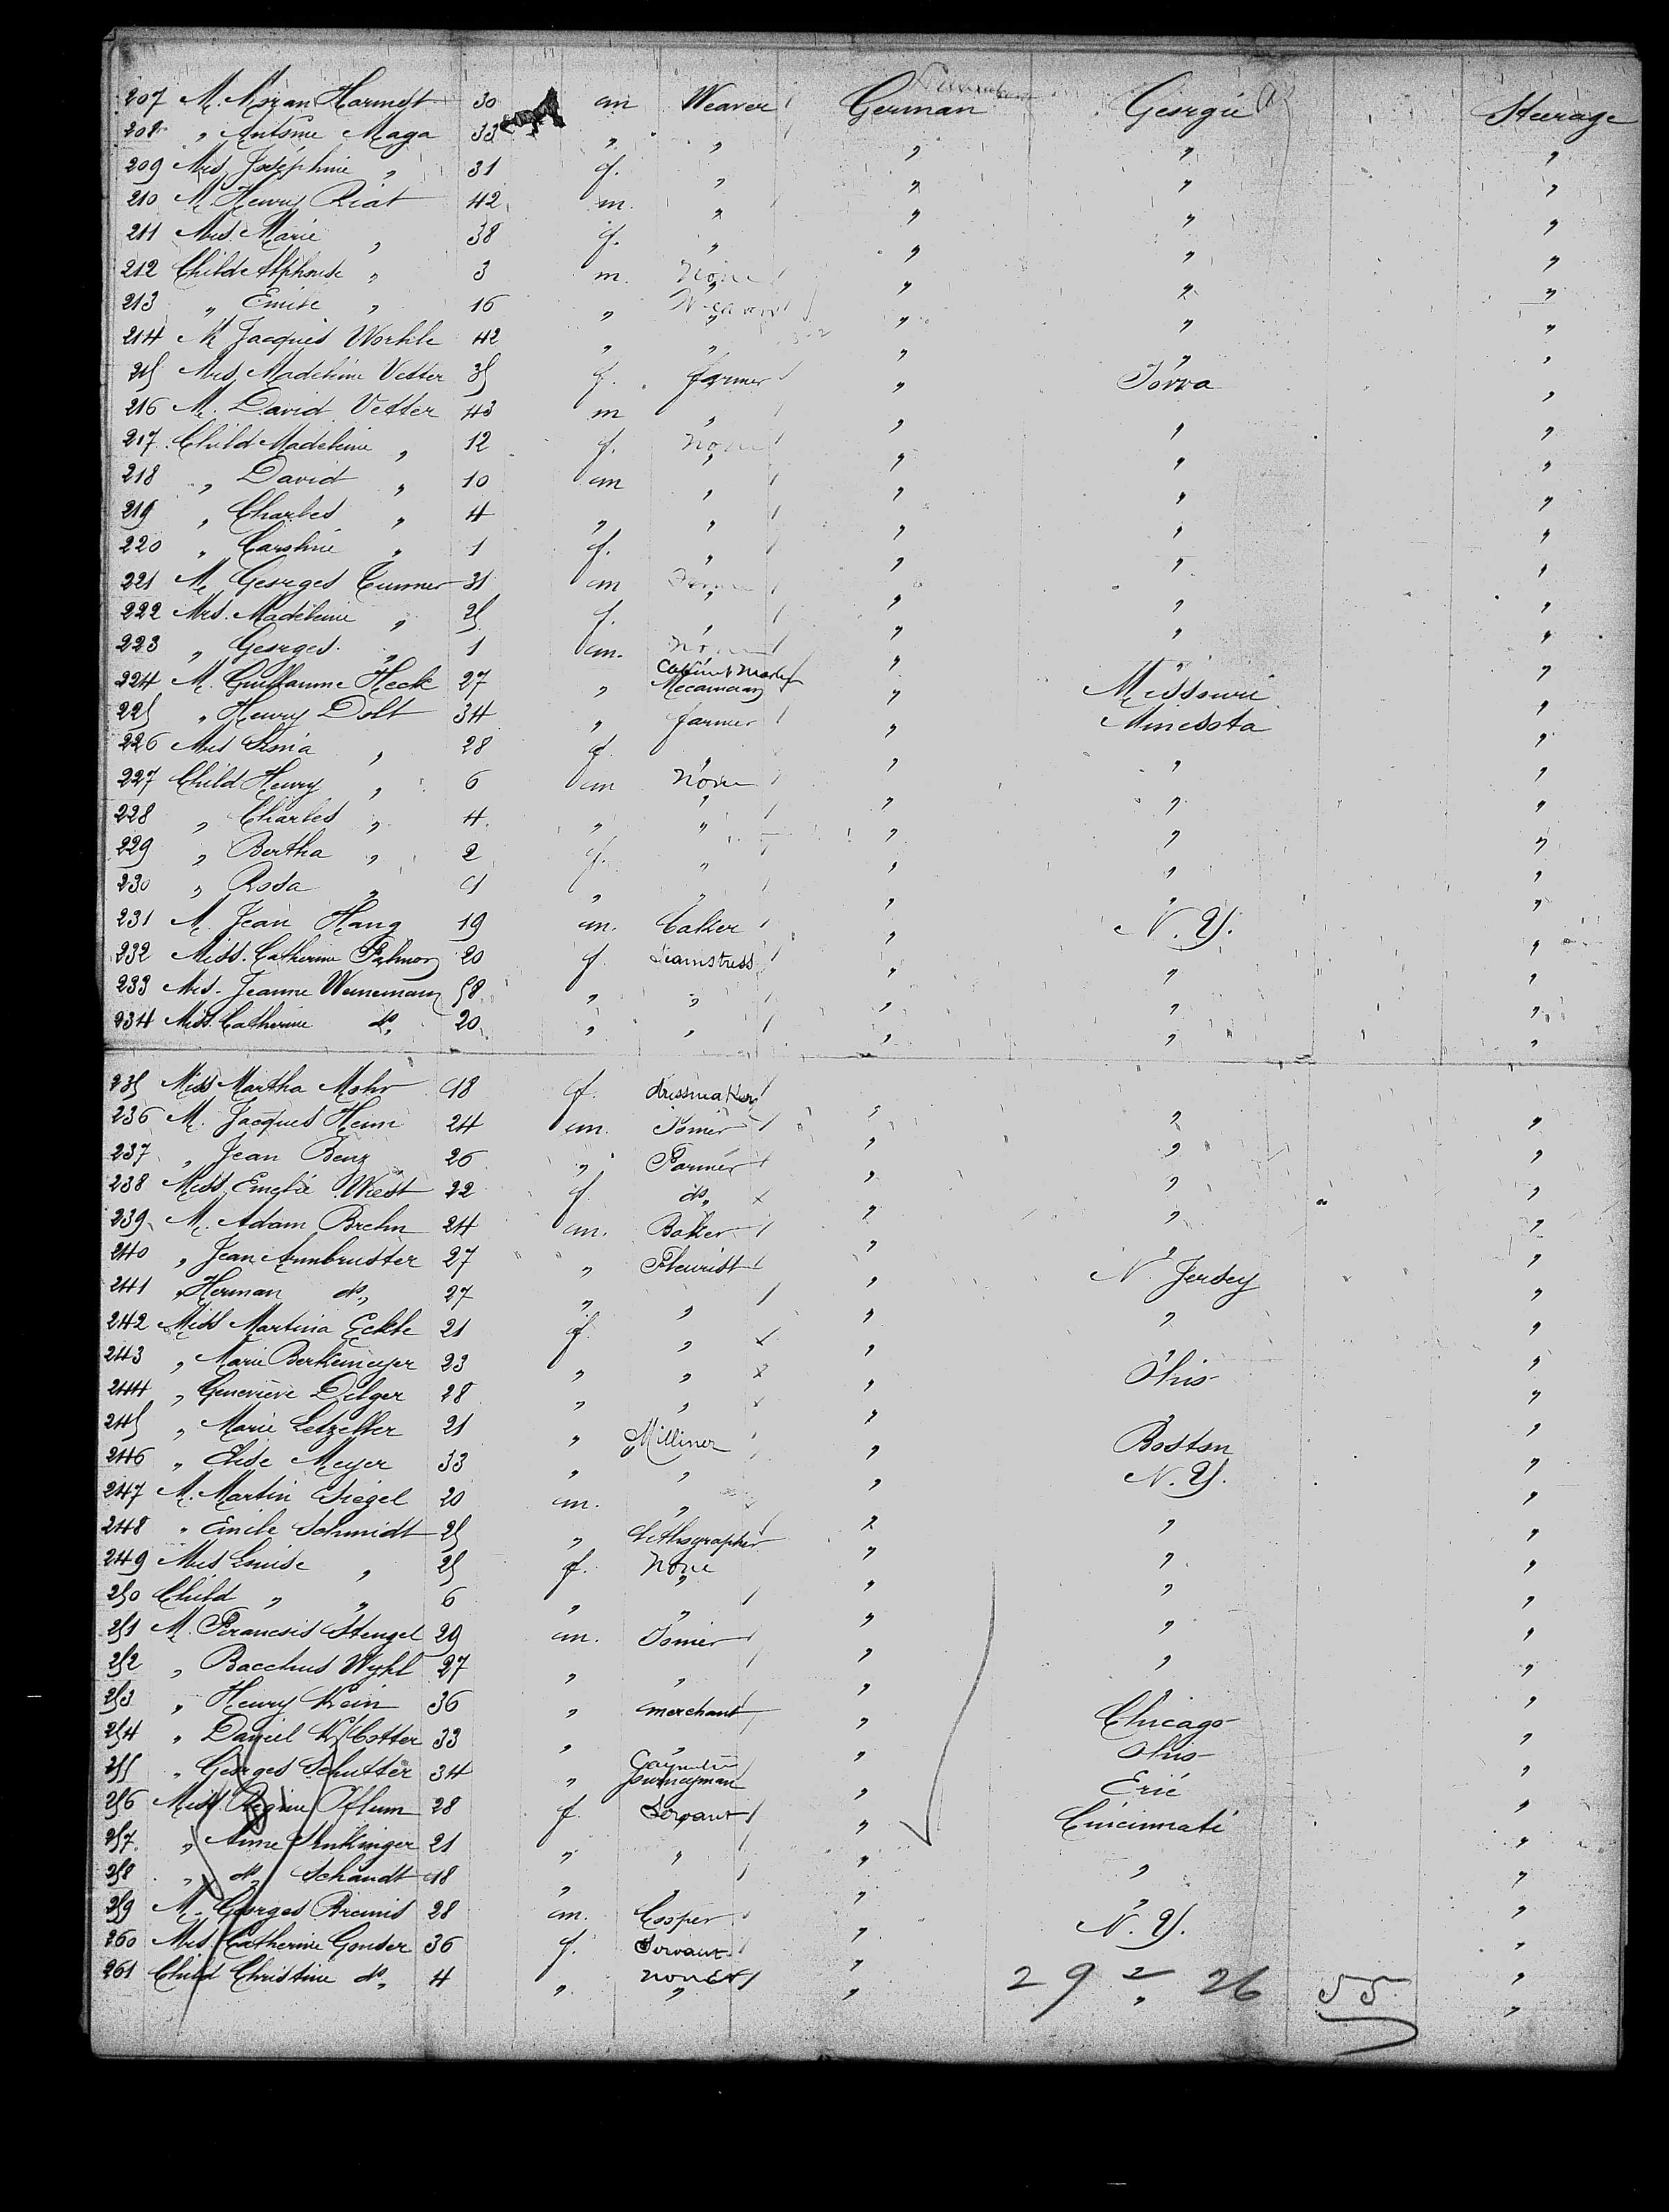 207 M. Moran Harmest 30 m Weaver German Georgie Steerage
208 " Antoine Maga 33 " " " " "
209 Mrs Joséphine " 31 f. " " " "
210 M. Henry Riat 42 m. " " " "
211 Mrs. Marie " 38 f. " " " "
212 Child Alphonse " 3 m. None " " "
213 " Emile " 16 " Weaver " " "
214 M Jacques Workle 42 " " " " "
215 Mrs Madeleine Vetter 35 f. farmer " Iowa "
216 M. David Vetter 43 m " " " "
217 Child Madeleine " 12 f. None " " "
218 " David " 10 m " " " "
219 " Charles " 4 " " " " "
220 " Caroline " 1 f. " " " "
221 M. Georges Tummer 31 m " " " "
222 Mrs. Madeleine " 25 f. " " " "
223 " Georges " 1 m. None " " "
224 M. Guillaume Heck 27 " Cabinet Maker Mecanician " Missouri "
225 " Henry Dolt 34 " farmer " Minessota "
226 Mrs " 28 f. " " " "
227 Child Henry " 6 m None " " "
228 " Charles " 4. " " " " "
229 " Bertha " 2 f. " " " "
230 " Rosa " 1 " " " " "
231 M. Jean Hang 19 m. Baker " N. Y. "
232 Miss. Catherine 20 f. Seamstress " " "
233 Mrs. Jeanne Weinemann 58 " " " " "
234 Miss. Catherine do, 20 " " " " "
235 Miss Martha Mohr 18 f. dressmaker
236 M. Jacques Heim 24 m. Joiner " " "
237 " Jean Benz 26 " Farmer " " "
238 Miss Emelie Wiest 22 f. do, " " "
239 M. Adam Brehn 24 m. Baker " " "
240 " Jean Armbruster 27 " Fleurist " N. Jersey "
241 " Herman do, 27 " " " " "
242 Miss Martina Eckle 21 f. " " " "
243 " Marie Berkemeyer 23 " " " Ohio "
244 " Geneviève Dilger 28 " " " " "
245 " Marie Letzelter 21 " Milliner " Boston "
246 " Elise Meyer 33 " " " N. Y. "
247 M. Martin Siegel 20 m. " " " "
248 " Emile Schmidt 25 " Lithographer " " "
249 Mrs Louise " 25 f. None " " "
250 Child " " 6 " " " " "
251 M. Francois Stengel 29 m. Joiner " " "
252 " Bacchus Wyhl 27 " " " " "
253 " Henry Kein 36 " merchant " Chicago "
254 " Daniel 33 " " " Ohio "
255 " Georges Schutter 34 " journeyman " Erié "
256 Miss. Regine Pflum 28 f. Servant " Cincinnati "
257 " Anne 21 " " " " "
258 " do, Schaudt 18 " " " " "
259 M. Georges 28 m. Cooper " N. Y. "
260 Mrs. Catherine Gonder 36 f. Servant " " "
261 Child Christine do, 4 " none " " "
29 26 55